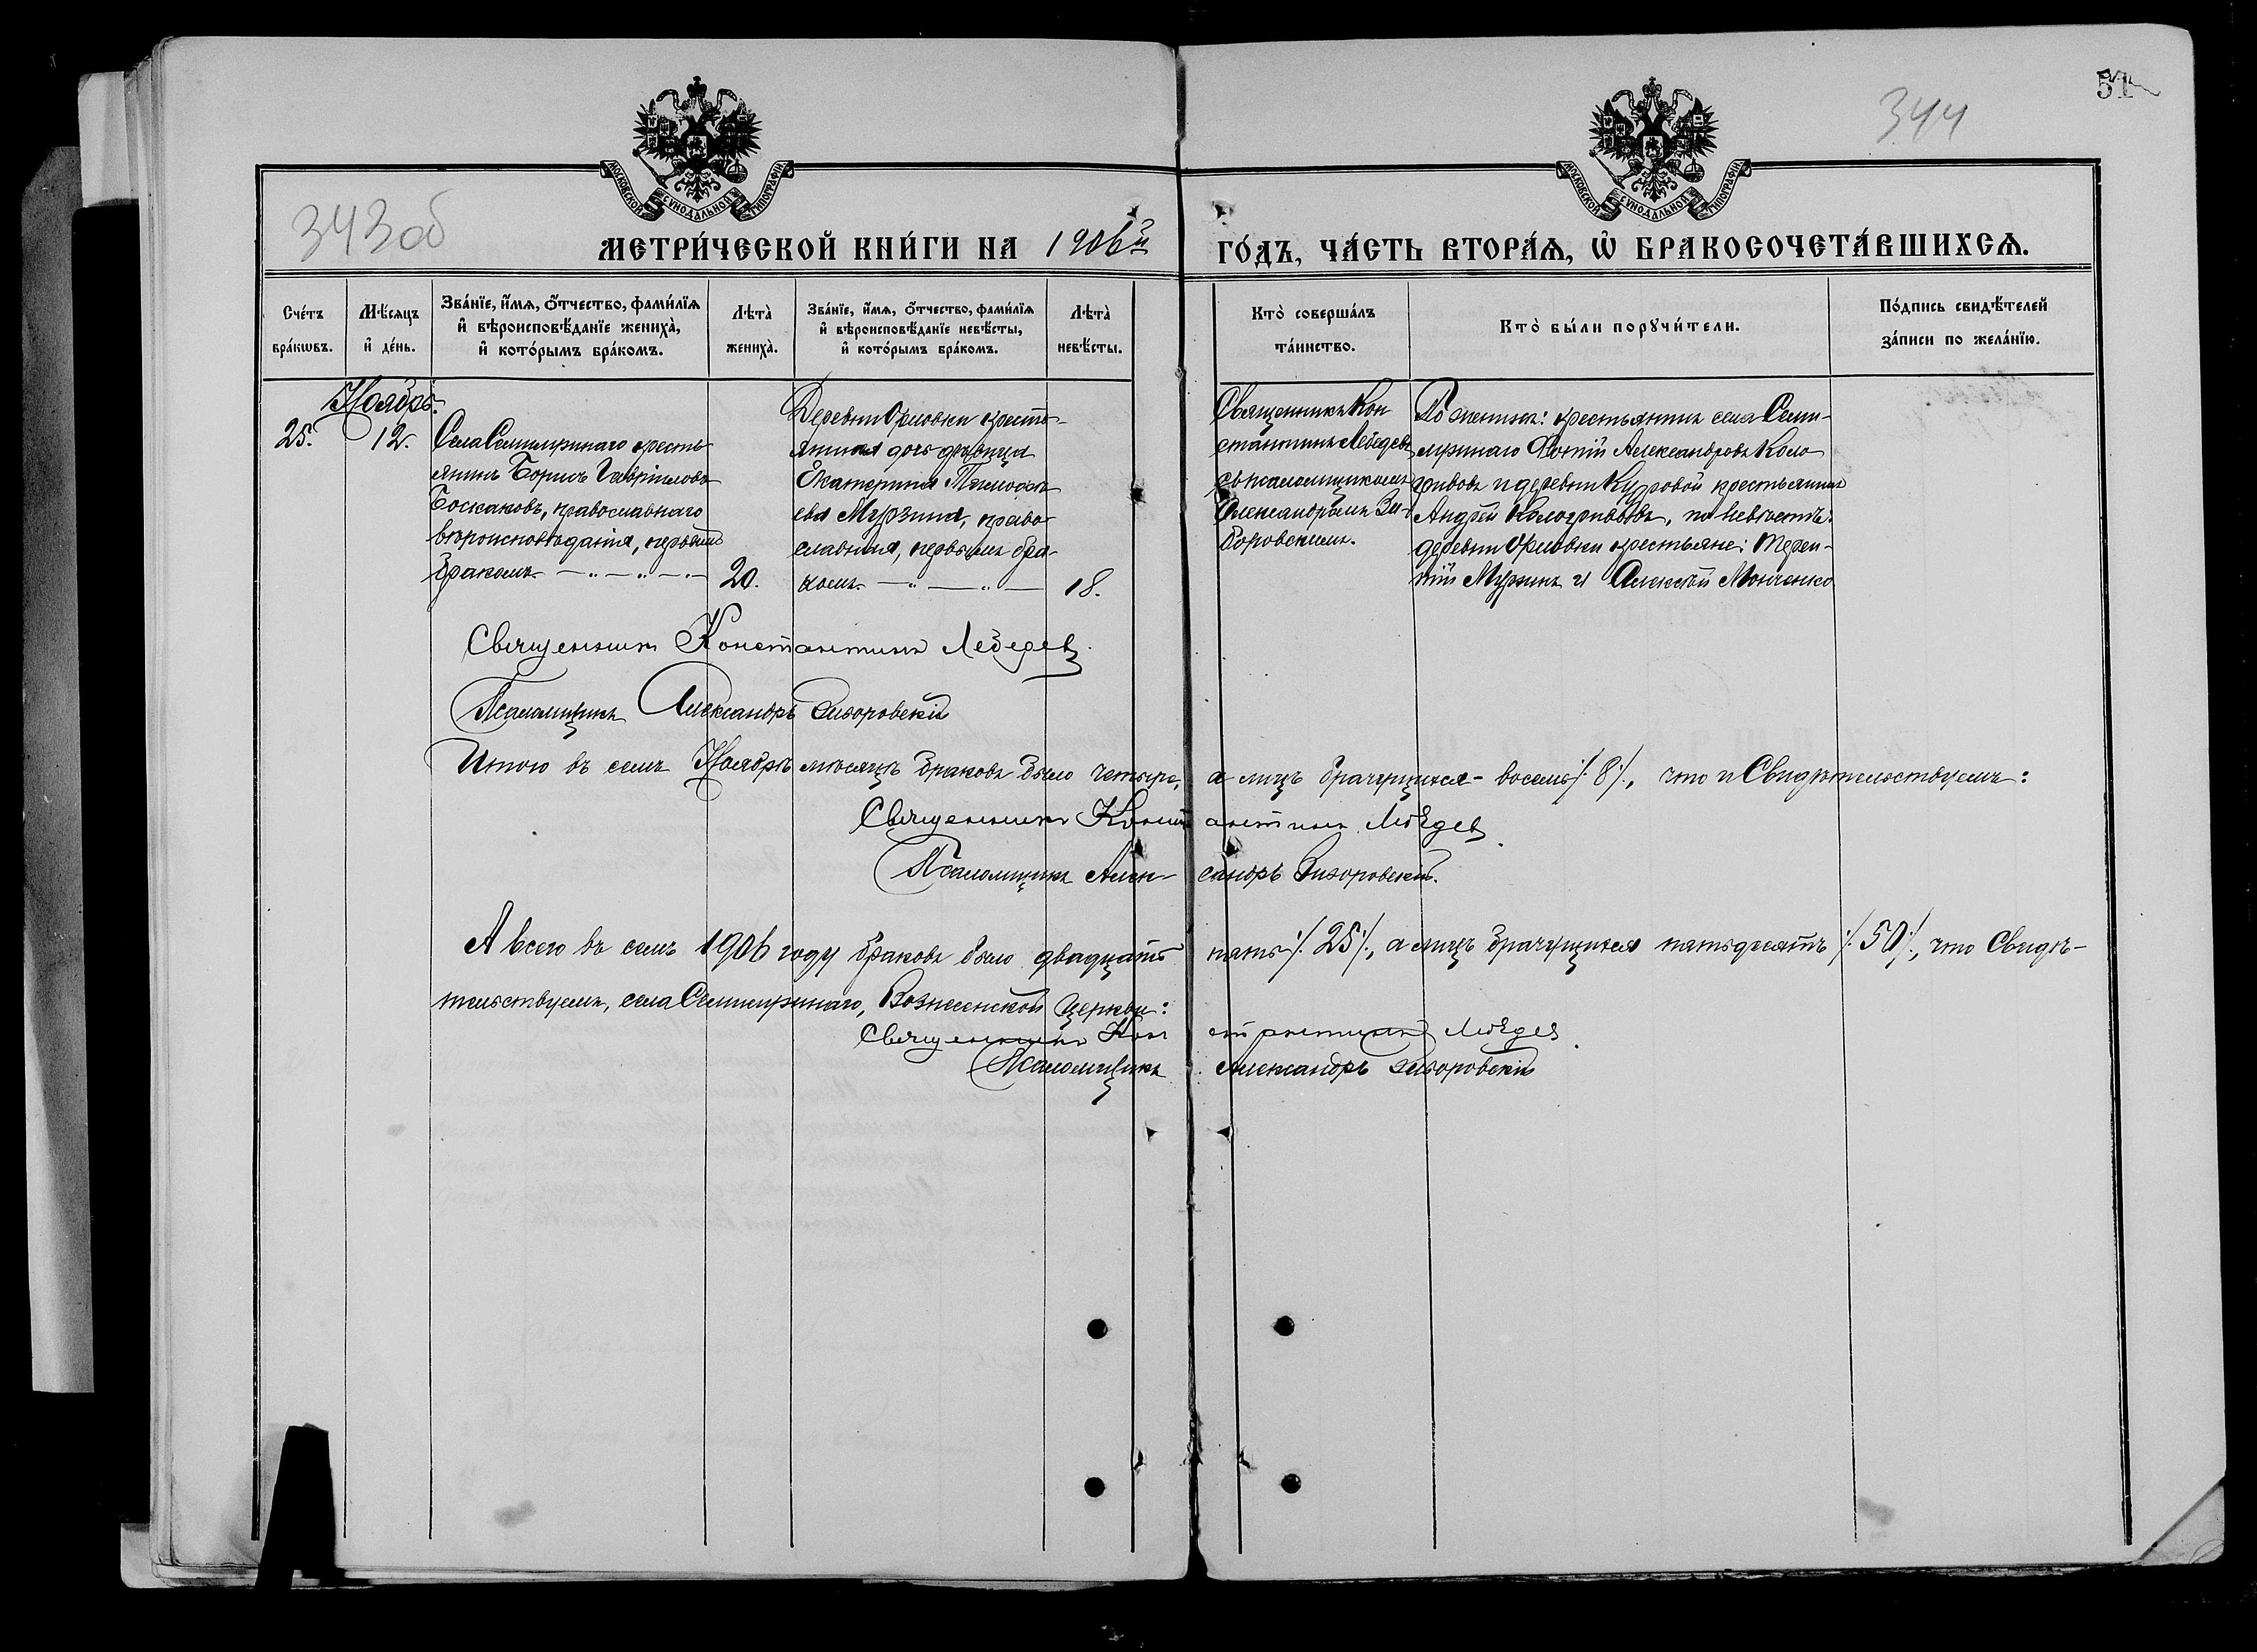 51
344
343об
МОСКОВСКОЙ СѴНОДАЛЬНОЙ ТИПОГРАФІИ
МОСКОВСКОЙ СѴНОДАЛЬНОЙ ТИПОГРАФІИ
МЕТРИ́ЧЕСКОЙ КНИ́ГИ НА 1906й ГО́ДЪ, ЧА́СТЬ ВТОРА́Ѧ, Ѽ БРАКОСОЧЕТА́ВШИХСѦ.
Сче́тъ бра́кѡвъ.
Мѣ́сяцъ и҆ де́нь.
Зва́нїе, и҆́мя, ѻ҆́тчество, фами́лїя и҆ вѣроисповѣ́данїе жениха̀, и҆ кото́рымъ бра́комъ.
Лѣта̀ жениха̀.
Зва́нїе, и҆́мя, ѻ҆́тчество, фами́лїя и҆ вѣроисповѣ́данїе невѣ́сты, и҆ кото́рымъ бра́комъ.
Лѣта̀ невѣ́сты.
Кто̀ соверша́лъ та́инство.
Кто̀ бы́ли порꙋчи́тели.
По́дпись свидѣ́телей за́писи по жела́нїю.
Ноябрь.
25.
12.
Села Семипрнаго кресть-
янинъ Борисъ Гавріиловъ
Боскаковъ, православнаго
вѣроисповѣданія, первымъ
бракомъ
20.
Деревни Орловки кресть-
янина дочь дѣвица
Екатерина
Мурзина, право-
славная, первымъ бра-
комъ
18.
Священникъ Кон
стантинъ Лебедевъ
съ псаломщикомъ
Александромъ За-
боровскимъ.
По женихѣ: крестьянинъ села Семи-
Фотій Александровъ Коло-
гривовъ и деревни крестьянинъ
Андрей Кологривовъ, по невѣстѣ:
деревни Орловки крестьяне: Терен-
тій Мурзинъ и Алексѣй Монченко
Священникъ Константинъ Лебедевъ.
Псаломщикъ Александръ Заборовскій
Итого въ семъ Ноябрѣ мѣсяцѣ браковъ было четыре, а лицъ брачущихся - восемь /. 8 /., что и Свидѣтельствуемъ:
Священникъ Константинъ Лебедевъ.
Псаломщикъ Александръ Заборовскій.
А всего въ семъ 1906 году браковъ было двадцать пять /. 25 /., а лицъ брачущихся пятьдесятъ /. 50 /., что Свидѣ-
тельствуемъ, села Вознесенской церкви:
Священникъ Константинъ Лебедевъ.
Псаломщикъ Александръ Заборовскій